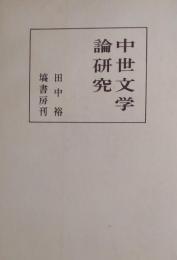 中世文学
論研究
田中裕
塙書房刊